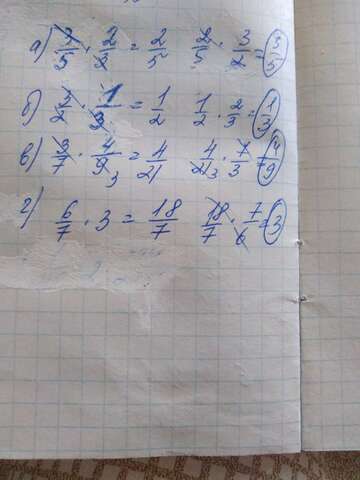 а) 3/5 · 2/3 = 2/5   2/5 · 3/2 = 3/5
б) 3/2 · 1/3 = 1/2   1/2 · 2/3 = 1/3
в) 3/7 · 4/9 3 = 4/21   4/21 3 · 7/3 = 4/9
г) 6/7 · 3 = 18/7   18/7 · 7/6 = 3